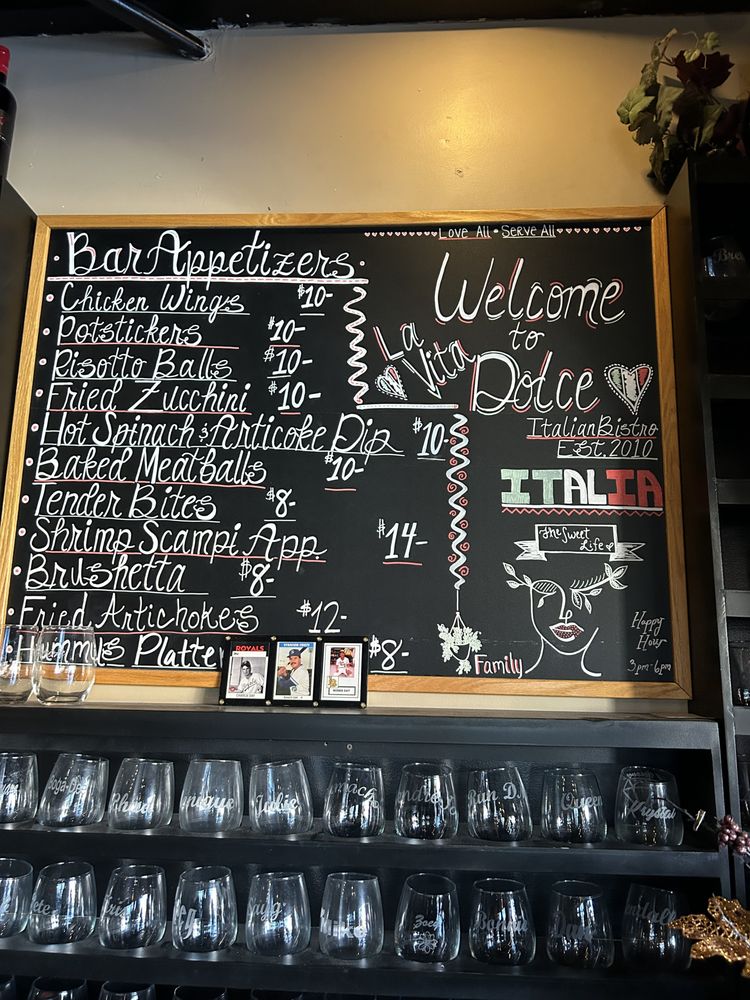 Love All • Serve All
Bar Appetizers
Chicken Wings $10-
Potstickers $10-
Risotto Balls $10-
Fried Zucchini $10-
Hot Spinach & Articoke Dip $10-
Baked Meatballs 10-
Tender Bites $8-
Shrimp Scampi App. $14-
Brushetta $8-
Fried Artichokes $12-
Hummus Platte $8-
Welcome
to
La Vita Dolce
Italian Bistro
Est. 2010
ITALIA
The Sweet
Life
Happy
Hour
3pm-6pm
Family
ROYALS
Julie
Run D.
Queen
Krystal
Mike
Zoey